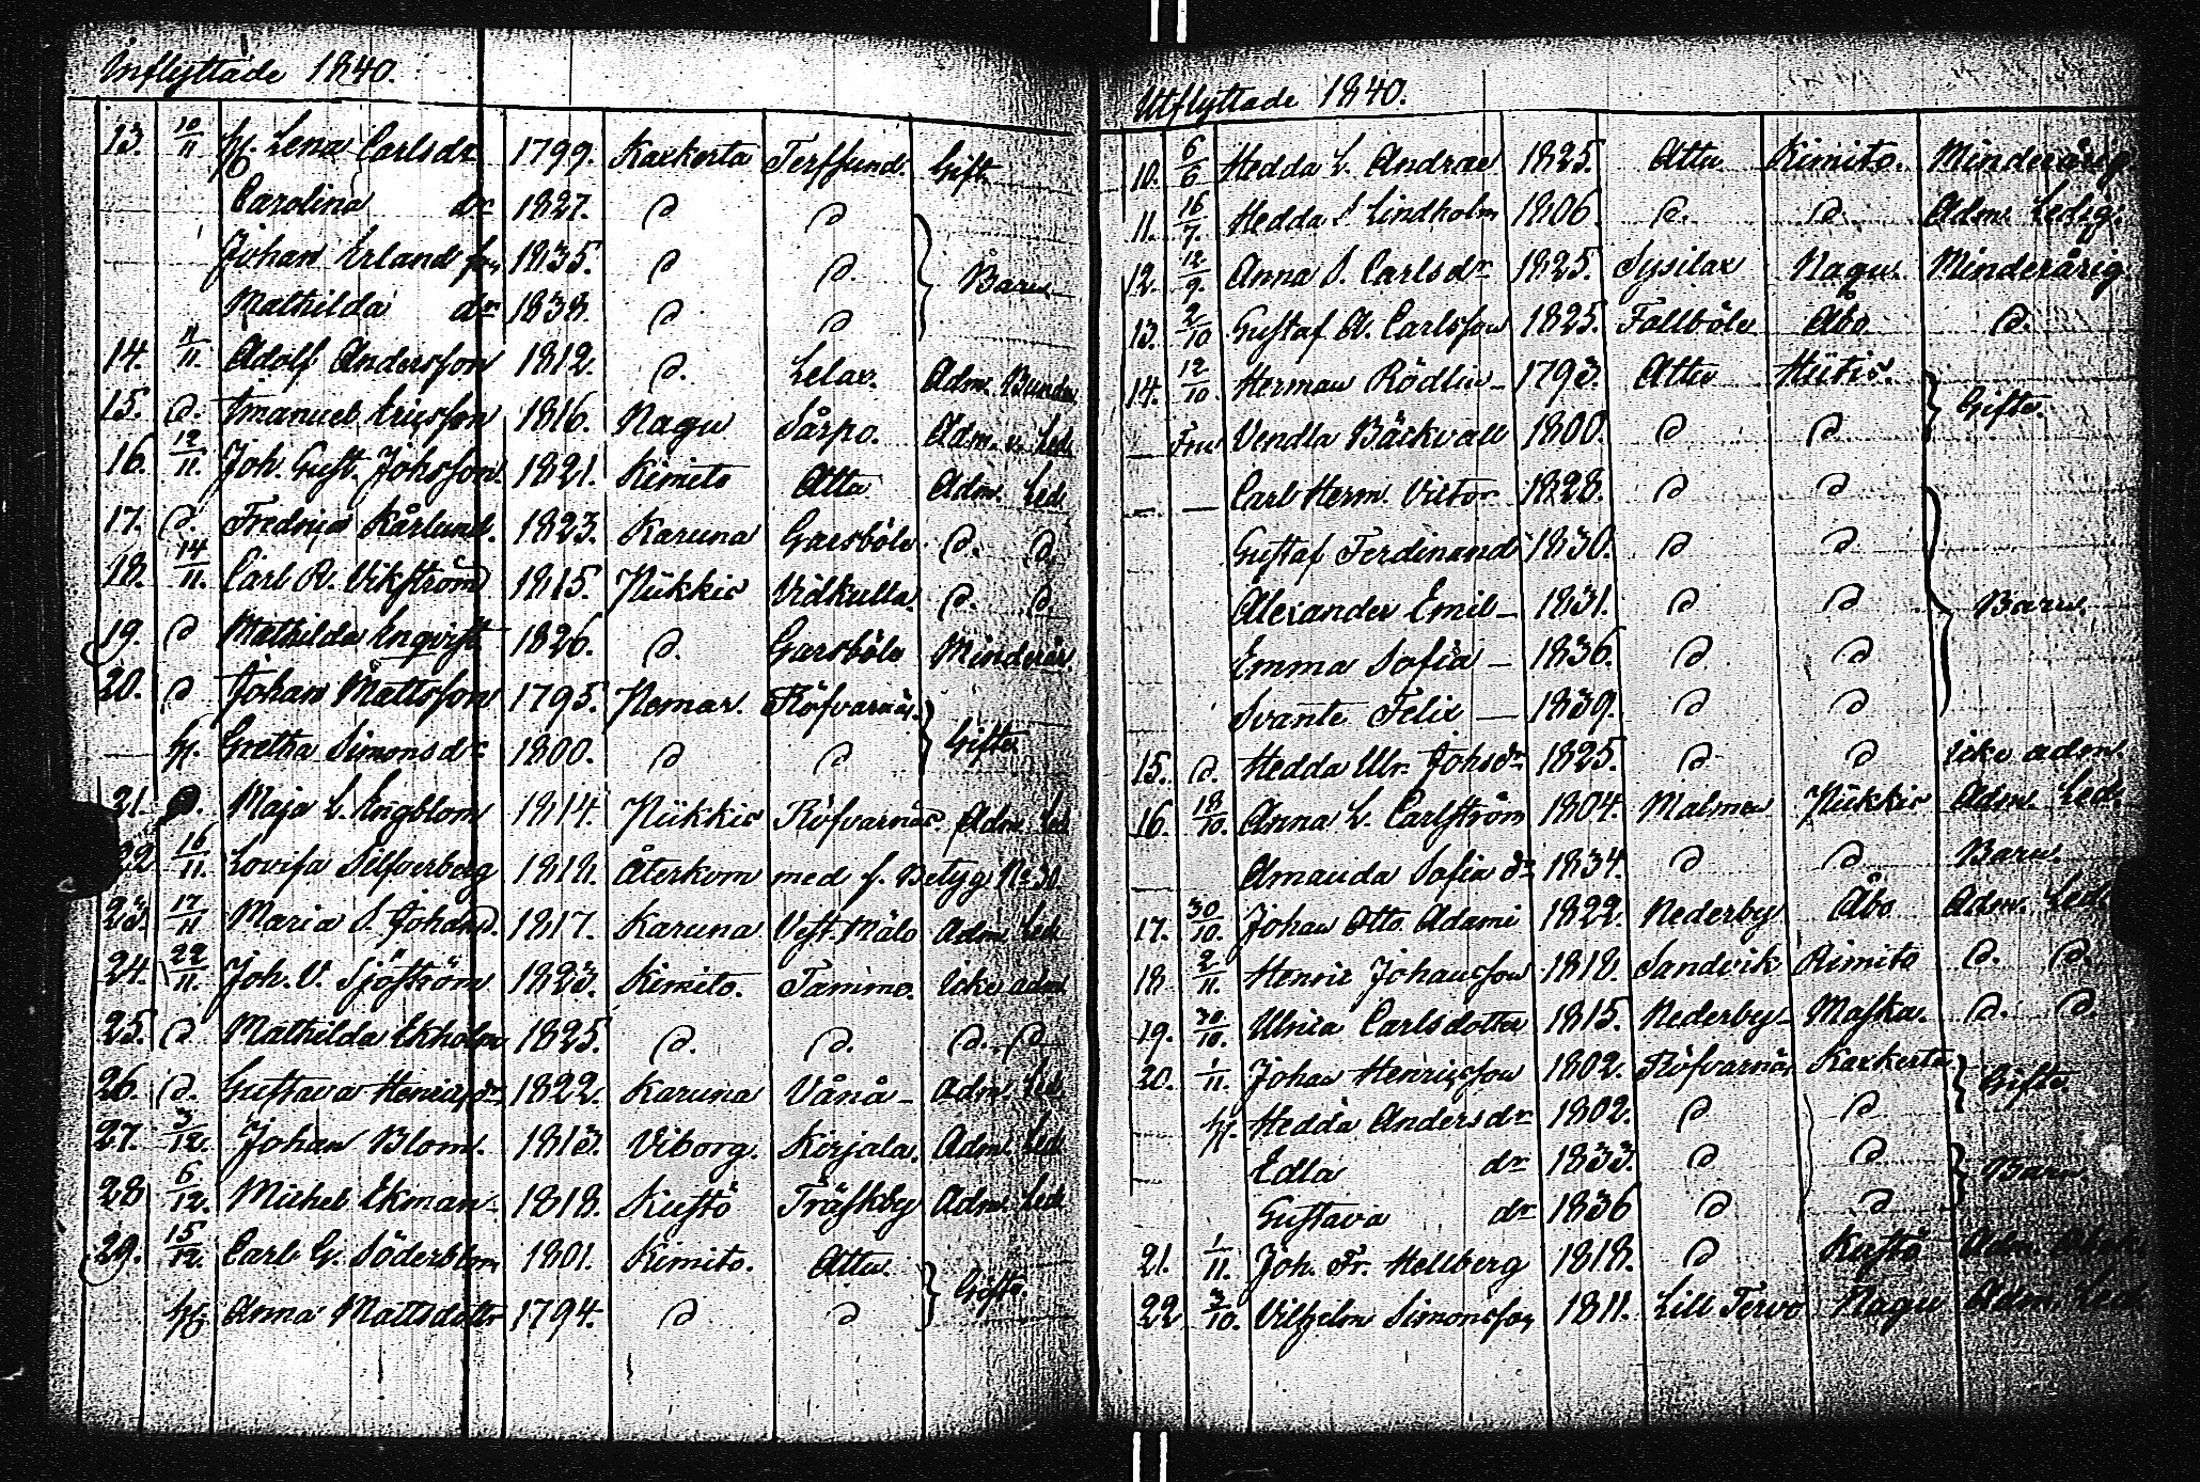 Inflyttade 1840.
13. 10/11 h. Lena Carlsdr 1799. Kaxkerta Terfsund. Gift
Carolina dr 1827. d d
Johan Erland son 1835. d d. Barn
Mathilda dr 1838. d d
14. 11/11. Adolf Andersson 1812. d. Lelax. Adm. Bunden
15. d. Emanuel Ericsson 1816. Nagu Sårpo. Adm. Led.
16. 12/11. Joh. Gust. Johsson. 1821. Kimito Attu Adm. Led.
17. d. Fredrica Kårlund. 1823. Karuna Garsböle d. d.
18. 14/11. Carl R. Vikström 1815. Piikkis Vidkulla. d. d.
19. d Mathilda Enqvist 1826. d. Garsböle Minderår.
20. d Johan Mattsson 1795. Nemar. Röfvarnäs. Gifte
h. Gretha Simonsdr 1800. d d
21. d. Maja L. Engblom 1814. Piikkis Röfvarnäs. Adm. Led
22 16/11. Lovisa Silfverberg 1818. Återkom med f. Betyg No 30.
23. 17/11 Maria S. Johsd. 1817. Karuna Vest. Mälo Adm. Led
24. 22/11. Joh. V. Sjöström 1823. Kimito. Tammo. icke adm
25. d Mathilda Ekholm 1825. d. d. d. d
26. d. Gustava Henricsdr 1822. Karuna Vånå Adm. Led.
27. 3/12. Johan Blom. 1813. Viborg. Kirjala. Adm. Led
28 6/12. Michel Ekman. 1818. Kustö Träskby Adm. Led
29. 15/12. Carl G. Söderblom 1801. Kimito. Attu. Gifte.
h. Anna Mattsdotter 1794. d d
Utflyttade 1840.
10. 6/6 Hedda L. Andrae 1825. Attu Kimito. Minderårig
11. 16/7. Hedda S Lindholm 1806. d. d. Adm. Ledig.
12. 12/9. Anna S. Carlsdr 1825. Sysilax Nagu. Minderårig.
13. 2/10 Gustaf A. Carlsson 1825. Fallböle Åbo d.
14. 12/10. Herman Rödlin 1793. Attu Hiitis. Gifte.
Fru Vendla Bäckvall 1800. d d
Carl Herm. Victor 1828. d d
Gustaf Ferdinand 1830. d d
Alexander Emil 1831. d d Barn
Emma Sofia 1836. d d
Svante Felix 1839. d d
15. d. Hedda Ulr. Johsdr 1825. d d icke adm.
16. 18/10. Anna L. Carlström 1804. Malmen Piikkis Adm. Led.
Amanda Sofia dr 1834. d d. Barn.
17. 30/10. Johan Otto Adami 1822. Nederby Åbo Adm. Led.
18 2/11. Henric Johansson 1818. Sandvik Rimito d. d.
19. 30/10. Ulrica Carlsdotter 1815. Nederby Maska. d. d.
20. 1/11. Johan Henricsson 1802. Röfvarnäs Kaxkerta Gifte
h. Hedda Andersdr 1802. d d
Edla dr 1833. d d Barn.
Gustava dr 1836 d d
21. 1/11. Joh. Fr. Hellberg 1818. d Kustö Adm.
22 3/10. Vilhelm Simonsson 1811. Lill Tervo Nagu Adm. Led